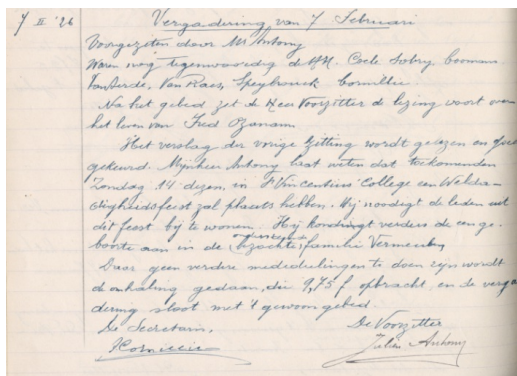 7 II '26 Vergadering van 7 Februari
Voorgezeten door Mr Antony
Waren nog tegenwoordig de HH. Coele Sobry Coomans
Van Raes, Speybrouck Cornillie
Na het gebed zet de Heer Voorzitter de lezing voort van
het leven van Fred Ozanam
Het verslag der vorige zitting wordt gelezen en goed
gekeurd. Mijnheer Antony laat weten dat toekomenden
Zondag 14 dezer, in St Vincentius College een Welda-
digheidsfeest zal plaats hebben. Hij noodigt de leden uit
dit feest bij te wonen. Hij kondigt verders de ge-
boorte aan in de ondersteunde (bezochte) familie Vermeulen
Daar geen verdere mededeelingen te doen zijn wordt
de omhaling gedaan, die 9,75 f opbracht en de verga
dering sloot met 't gewoon gebed.
De Secretaris, De Voorzitter
Julien Anthony